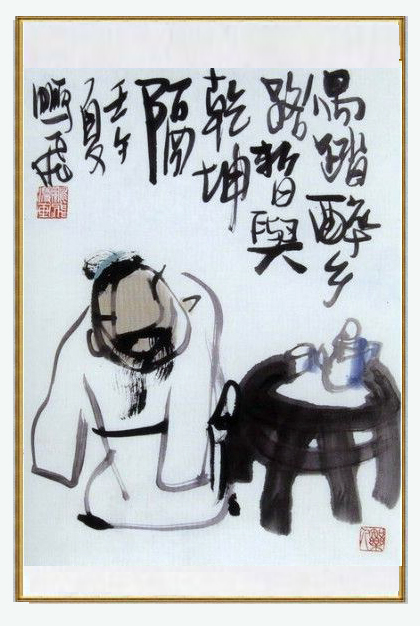 偶踏醉乡
路暂與
乾坤
隔
壬午
夏
鸣飞